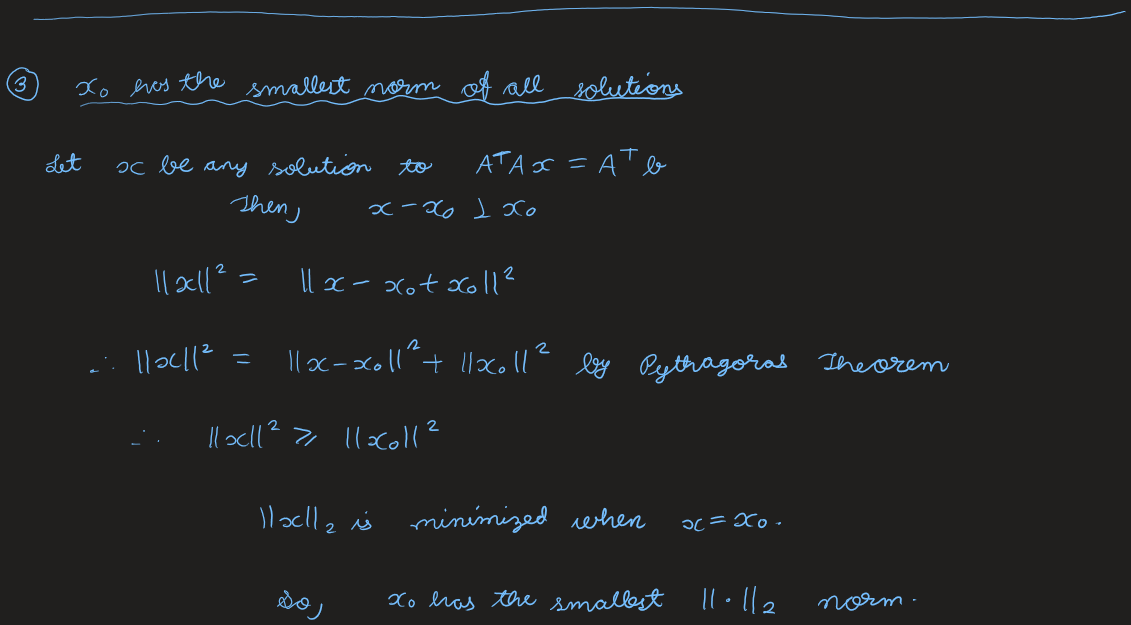 ③ x₀ has the smallest norm of all solutions
Let x be any solution to AᵀAx = Aᵀb
Then, x - x₀ ⊥ x₀
||x||² = ||x - x₀ + x₀||²
∴ ||x||² = ||x - x₀||² + ||x₀||² by Pythagoras Theorem
∴ ||x||² ⩾ ||x₀||²
||x||₂ is minimized when x = x₀.
So, x₀ has the smallest ||·||₂ norm.